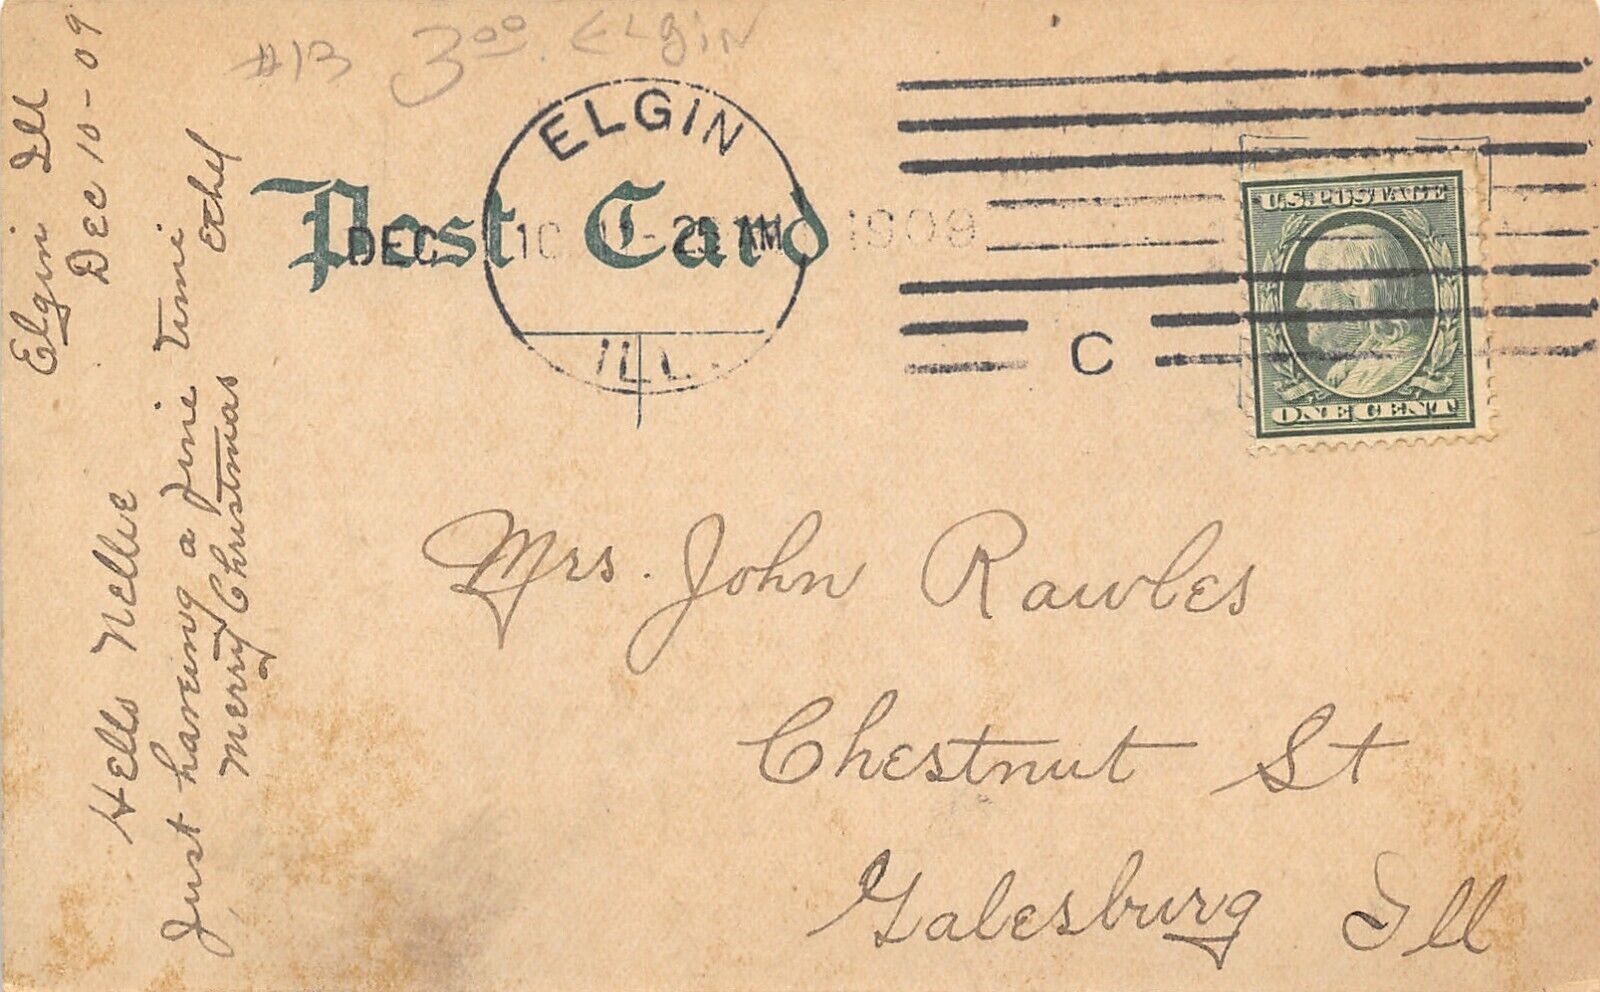 #13 3.00 Elgin
Elgin Ill
Dec 10-09
Hello Nellie
Just having a fine time
Merry Christmas Ethel
Post Card
ELGIN
DEC 10 11-20 AM 1909
ILL.
C
U.S. POSTAGE
ONE CENT
Mrs. John Rawles
Chestnut St
Galesburg Ill